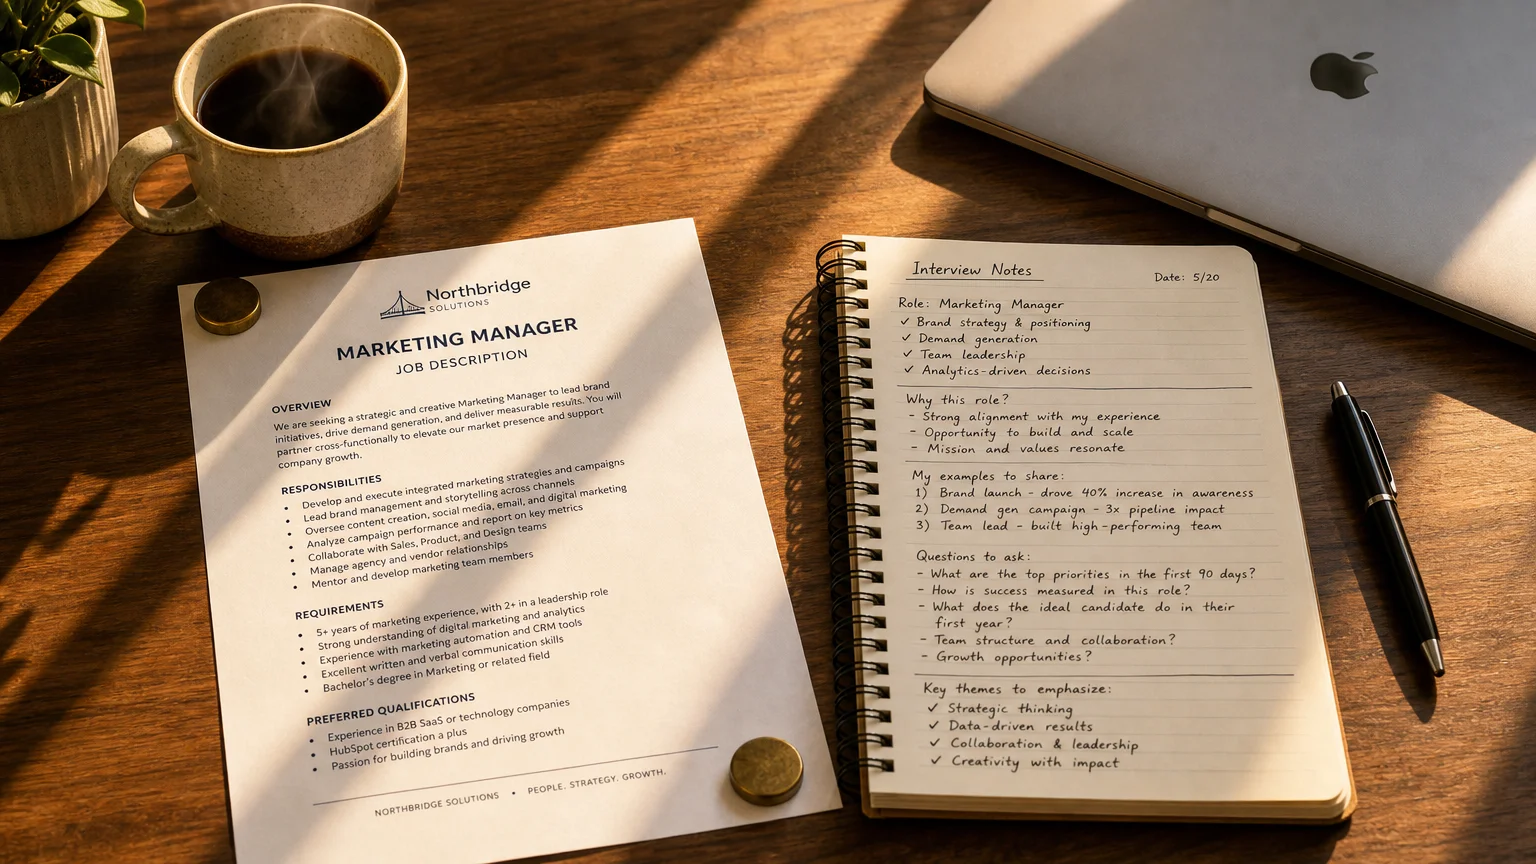 Northbridge
SOLUTIONS
MARKETING MANAGER
JOB DESCRIPTION
OVERVIEW
We are seeking a strategic and creative Marketing Manager to lead brand
initiatives, drive demand generation, and deliver measurable results. You will
partner cross-functionally to elevate our market presence and support
company growth.
RESPONSIBILITIES
• Develop and execute integrated marketing strategies and campaigns
• Lead brand management and storytelling across channels
• Oversee content creation, social media, email, and digital marketing
• Analyze campaign performance and report on key metrics
• Collaborate with Sales, Product, and Design teams
• Manage agency and vendor relationships
• Mentor and develop marketing team members
REQUIREMENTS
• 5+ years of marketing experience, with 2+ in a leadership role
• Strong understanding of digital marketing and analytics
• Experience with marketing automation and CRM tools
• Excellent written and verbal communication skills
• Bachelor's degree in Marketing or related field
PREFERRED QUALIFICATIONS
• Experience in B2B SaaS or technology companies
• HubSpot certification a plus
• Passion for building brands and driving growth
NORTHBRIDGE SOLUTIONS • PEOPLE. STRATEGY. GROWTH.
Interview Notes
Date: 5/20
Role: Marketing Manager
✓ Brand strategy & positioning
✓ Demand generation
✓ Team leadership
✓ Analytics-driven decisions
Why this role?
- Strong alignment with my experience
- Opportunity to build and scale
- Mission and values resonate
My examples to share:
1) Brand launch - drove 40% increase in awareness
2) Demand gen campaign - 3x pipeline impact
3) Team lead - built high-performing team
Questions to ask:
- What are the top priorities in the first 90 days?
- How is success measured in this role?
- What does the ideal candidate do in their
first year?
- Team structure and collaboration?
- Growth opportunities?
Key themes to emphasize:
✓ Strategic thinking
✓ Data-driven results
✓ Collaboration & leadership
✓ Creativity with impact